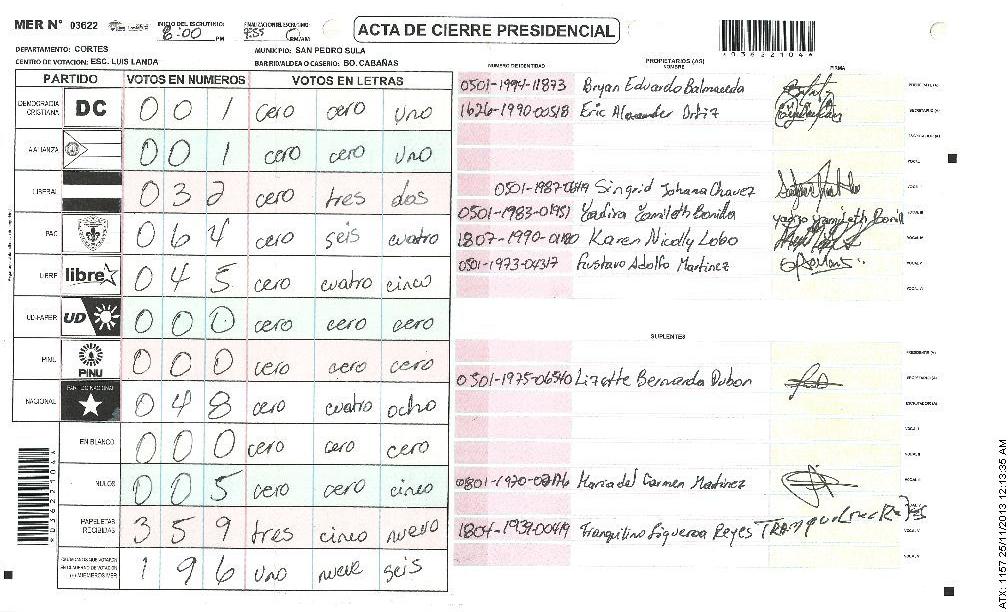 MER N° 03622
INICIO DEL ESCRUTINIO: 8:00 PM
FINALIZACION DEL ESCRUTINIO: 9:55 PM/AM
ACTA DE CIERRE PRESIDENCIAL
*03622104*
DEPARTAMENTO: CORTES
MUNICIPIO: SAN PEDRO SULA
CENTRO DE VOTACION: ESC. LUIS LANDA
BARRIO/ALDEA O CASERIO: BO. CABAÑAS
PARTIDO VOTOS EN NUMEROS VOTOS EN LETRAS
DEMOCRACIA CRISTIANA DC 0 0 1 cero cero uno
AALIANZA 0 0 1 cero cero uno
LIBERAL 0 3 2 cero tres dos
PAC 0 6 4 cero seis cuatro
LIBRE libre 0 4 5 cero cuatro cinco
UD-FAPER UD 0 0 0 cero cero cero
PINU PINU 0 0 0 cero cero cero
NACIONAL PARTIDO NACIONAL 0 4 8 cero cuatro ocho
EN BLANCO 0 0 0 cero cero cero
NULOS 0 0 5 cero cero cinco
PAPELETAS RECIBIDAS 3 5 9 tres cinco nueve
CIUDADANOS QUE VOTARON EN CUADERNO DE VOTACION (+) MIEMBROS MER 1 9 6 uno nueve seis
*03622104*
NUMERO DE IDENTIDAD PROPIETARIOS (AS) NOMBRE FIRMA
0501-1994-11873 Bryan Eduardo Balmaceda PRESIDENTE (A)
1626-1990-00518 Eric Alexander Ortiz SECRETARIO (A)
ESCRUTADOR (A)
VOCAL I
0501-1987- Singrid Johana Chavez
0501-1983-01951 Yadira Yamileth Bonilla
1807-1990-01180 Karen Nicolly Lobo
0501-1973-04317 Gustavo Adolfo Martinez
SUPLENTES
PRESIDENTE (A)
0501-1975-06540 Lizette Bernarda Dubon SECRETARIO (A)
ESCRUTADOR (A)
VOCAL I
VOCAL II
0801-1970- Maria del Carmen Martinez
1804-1939-00419 Tranquilino Figueroa Reyes
ATX: 1157 25/11/2013 12:13:35 AM